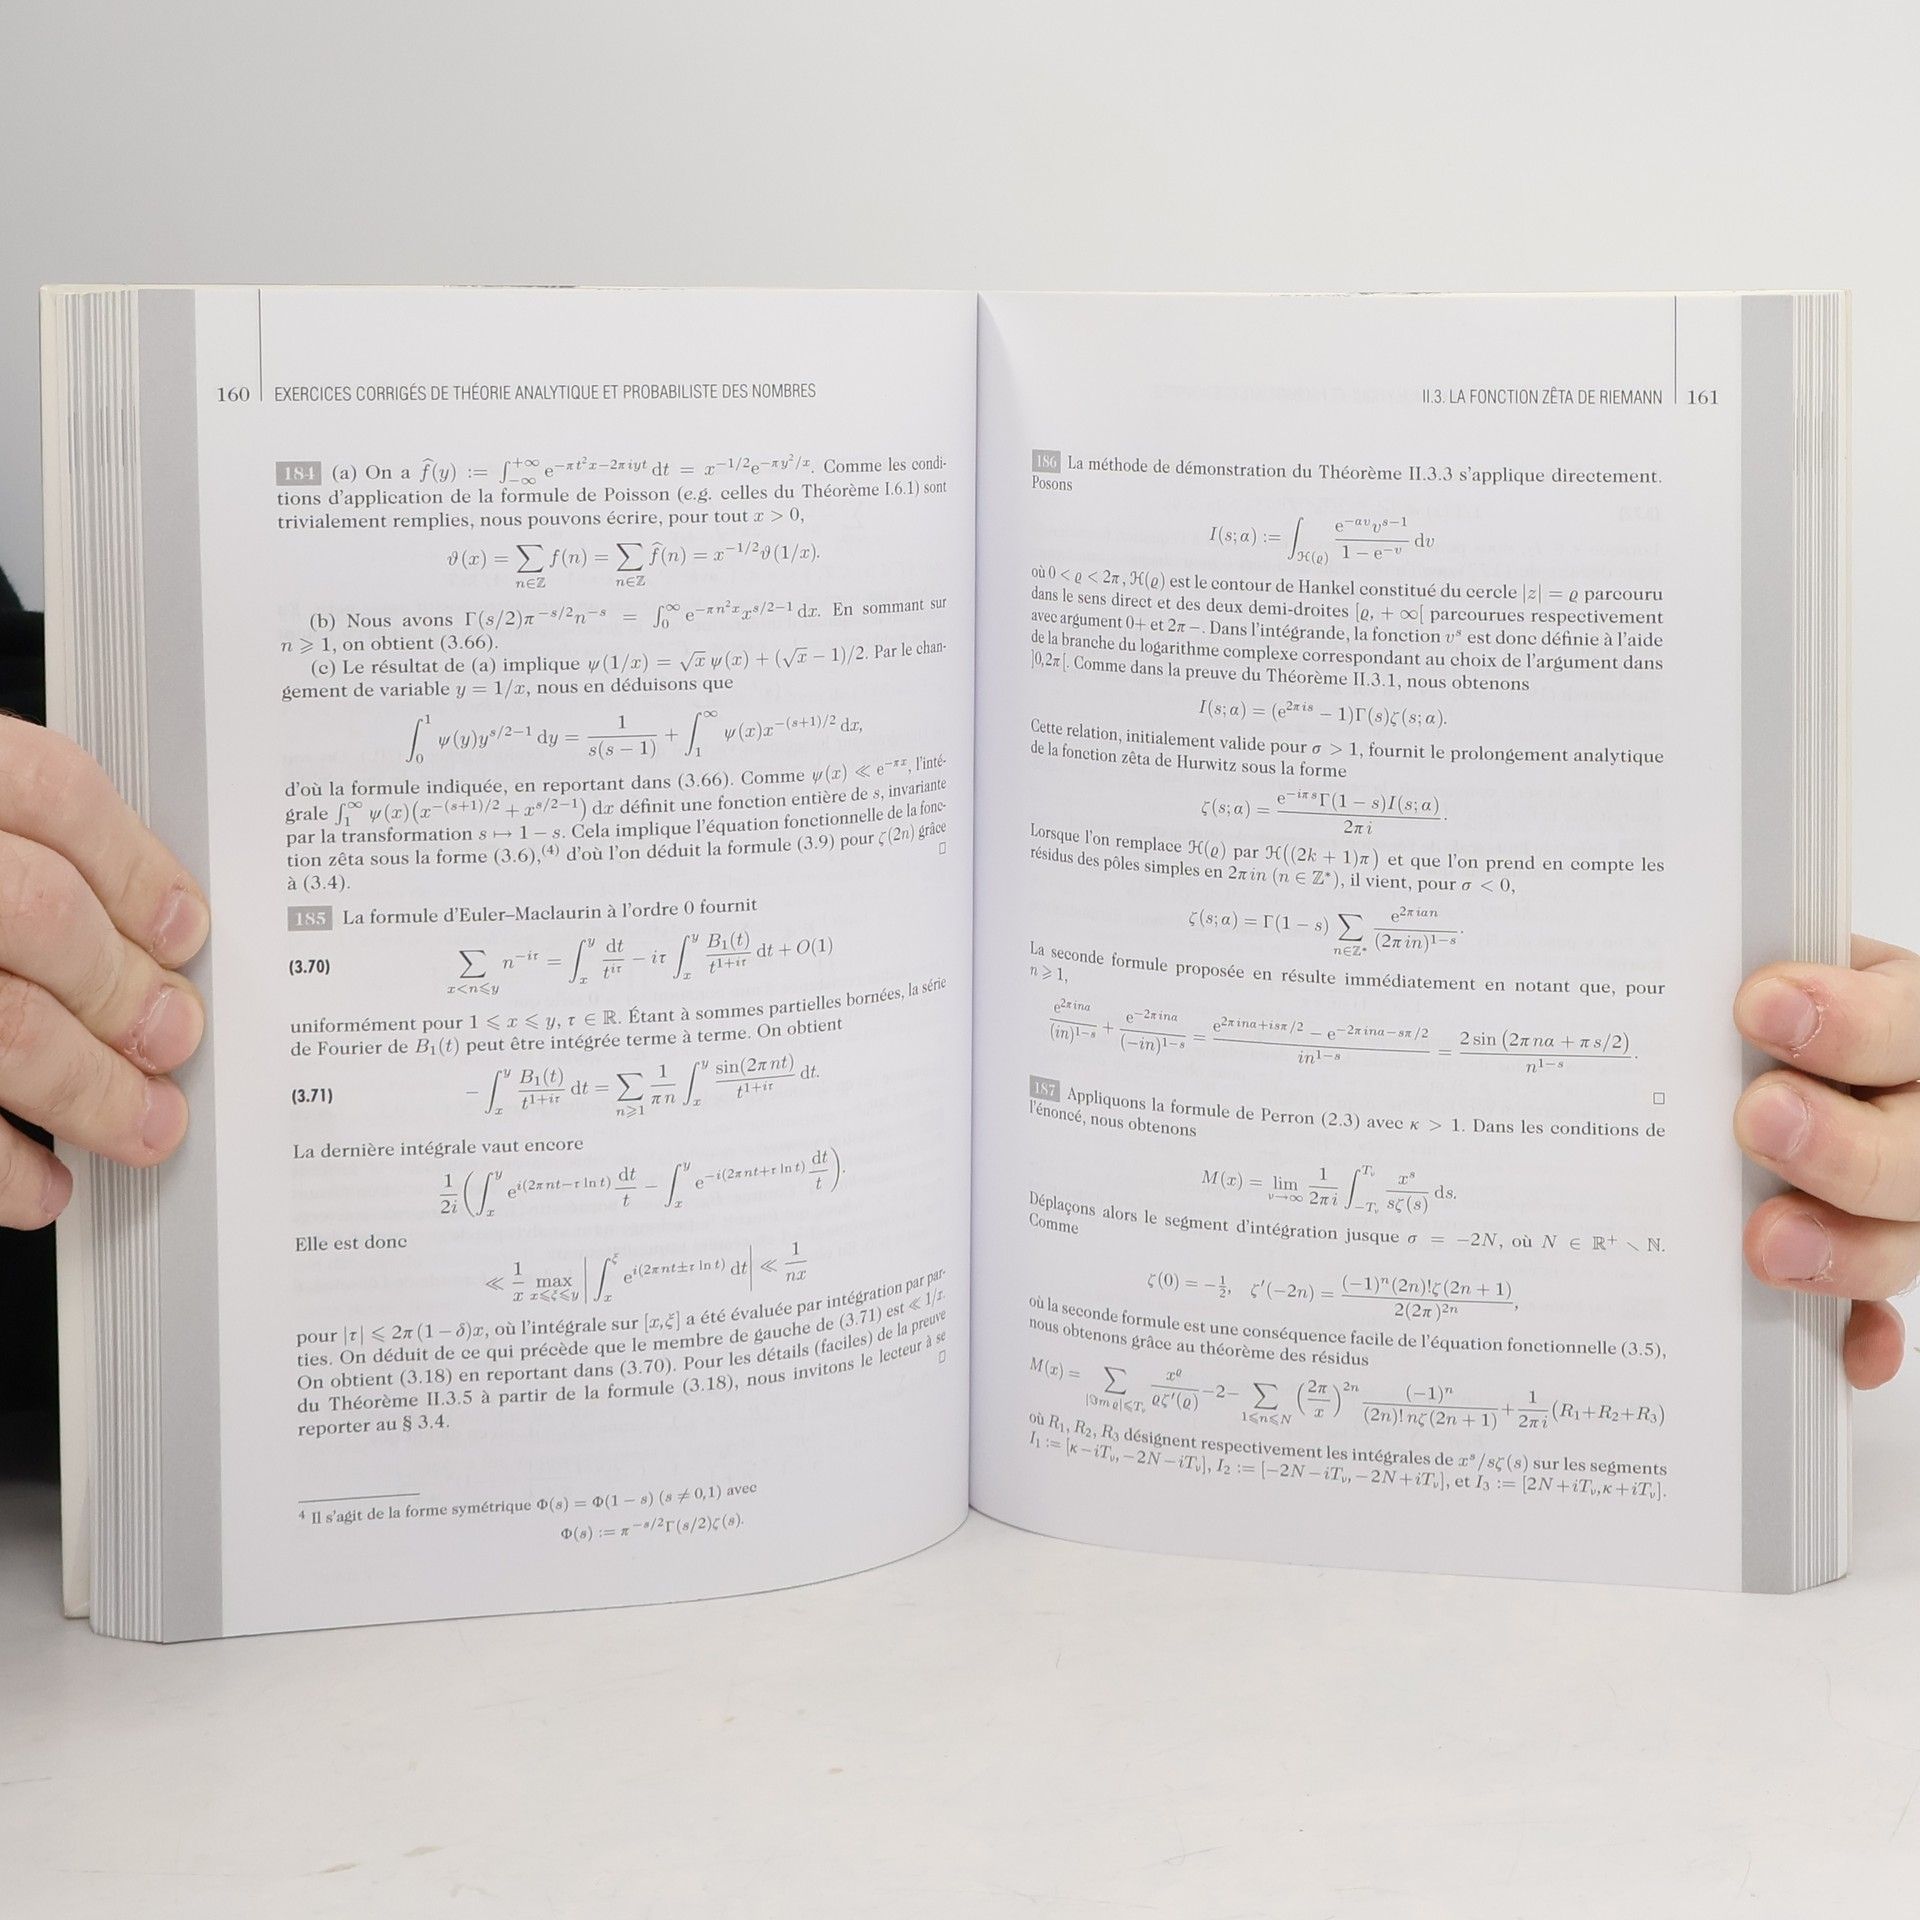 160 EXERCICES CORRIGÉS DE THÉORIE ANALYTIQUE ET PROBABILISTE DES NOMBRES
184 (a) On a f̂(y) := ∫_{−∞}^{+∞} e^{−πt²x−2πiyt} dt = x^{−1/2}e^{−πy²/x}. Comme les condi-
tions d'application de la formule de Poisson (e.g. celles du Théorème I.6.1) sont
trivialement remplies, nous pouvons écrire, pour tout x > 0,
ϑ(x) = ∑_{n∈ℤ} f(n) = ∑_{n∈ℤ} f̂(n) = x^{−1/2}ϑ(1/x).
(b) Nous avons Γ(s/2)π^{−s/2}n^{−s} = ∫_0^∞ e^{−πn²x}x^{s/2−1} dx. En sommant sur
n ⩾ 1, on obtient (3.66).
(c) Le résultat de (a) implique ψ(1/x) = √x ψ(x) + (√x − 1)/2. Par le chan-
gement de variable y = 1/x, nous en déduisons que
∫_0^1 ψ(y)y^{s/2−1} dy = 1/(s(s − 1)) + ∫_1^∞ ψ(x)x^{−(s+1)/2} dx,
d'où la formule indiquée, en reportant dans (3.66). Comme ψ(x) ≪ e^{−πx}, l'inté-
grale ∫_1^∞ ψ(x)(x^{−(s+1)/2} + x^{s/2−1}) dx définit une fonction entière de s, invariante
par la transformation s ↦ 1 − s. Cela implique l'équation fonctionnelle de la fonc-
tion zêta sous la forme (3.6),⁽⁴⁾ d'où l'on déduit la formule (3.9) pour ζ(2n) grâce
à (3.4). □
185 La formule d'Euler–Maclaurin à l'ordre 0 fournit
(3.70) ∑_{x<n⩽y} n^{−iτ} = ∫_x^y dt/t^{iτ} − iτ ∫_x^y B₁(t)/t^{1+iτ} dt + O(1)
uniformément pour 1 ⩽ x ⩽ y, τ ∈ ℝ. Étant à sommes partielles bornées, la série
de Fourier de B₁(t) peut être intégrée terme à terme. On obtient
(3.71) − ∫_x^y B₁(t)/t^{1+iτ} dt = ∑_{n⩾1} 1/(πn) ∫_x^y sin(2πnt)/t^{1+iτ} dt.
La dernière intégrale vaut encore
1/(2i) (∫_x^y e^{i(2πnt−τ ln t)} dt/t − ∫_x^y e^{−i(2πnt+τ ln t)} dt/t).
Elle est donc
≪ 1/x max_{x⩽ξ⩽y} |∫_x^ξ e^{i(2πnt±τ ln t)} dt| ≪ 1/(nx)
pour |τ| ⩽ 2π(1 − δ)x, où l'intégrale sur [x,ξ] a été évaluée par intégration par par-
ties. On déduit de ce qui précède que le membre de gauche de (3.71) est ≪ 1/x.
On obtient (3.18) en reportant dans (3.70). Pour les détails (faciles) de la preuve
du Théorème II.3.5 à partir de la formule (3.18), nous invitons le lecteur à se
reporter au § 3.4. □
4 Il s'agit de la forme symétrique Φ(s) = Φ(1 − s) (s ≠ 0,1) avec
Φ(s) := π^{−s/2}Γ(s/2)ζ(s).
II.3. LA FONCTION ZÊTA DE RIEMANN 161
186 La méthode de démonstration du Théorème II.3.3 s'applique directement.
Posons
I(s; a) := ∫_{ℋ(ϱ)} e^{−av}v^{s−1}/(1 − e^{−v}) dv
où 0 < ϱ < 2π, ℋ(ϱ) est le contour de Hankel constitué du cercle |z| = ϱ parcouru
dans le sens direct et des deux demi-droites [ϱ, + ∞[ parcourues respectivement
avec argument 0+ et 2π−. Dans l'intégrande, la fonction v^s est donc définie à l'aide
de la branche du logarithme complexe correspondant au choix de l'argument dans
]0,2π[. Comme dans la preuve du Théorème II.3.1, nous obtenons
I(s; a) = (e^{2πis} − 1)Γ(s)ζ(s; a).
Cette relation, initialement valide pour σ > 1, fournit le prolongement analytique
de la fonction zêta de Hurwitz sous la forme
ζ(s; a) = e^{−iπs}Γ(1 − s)I(s; a)/(2πi).
Lorsque l'on remplace ℋ(ϱ) par ℋ((2k + 1)π) et que l'on prend en compte les
résidus des pôles simples en 2πin (n ∈ ℤ*), il vient, pour σ < 0,
ζ(s; a) = Γ(1 − s) ∑_{n∈ℤ*} e^{2πian}/(2πin)^{1−s}.
La seconde formule proposée en résulte immédiatement en notant que, pour
n ⩾ 1,
e^{2πina}/(in)^{1−s} + e^{−2πina}/(−in)^{1−s} = (e^{2πina+isπ/2} − e^{−2πina−sπ/2})/(in^{1−s}) = 2 sin (2πna + πs/2)/n^{1−s}.
□
187 Appliquons la formule de Perron (2.3) avec κ > 1. Dans les conditions de
l'énoncé, nous obtenons
M(x) = lim_{ν→∞} 1/(2πi) ∫_{−T_ν}^{T_ν} x^s/(sζ(s)) ds.
Déplaçons alors le segment d'intégration jusque σ = −2N, où N ∈ ℝ⁺ ∖ ℕ.
Comme
ζ(0) = −½, ζ′(−2n) = (−1)^n(2n)!ζ(2n + 1)/(2(2π)^{2n}),
où la seconde formule est une conséquence facile de l'équation fonctionnelle (3.5),
nous obtenons grâce au théorème des résidus
M(x) = ∑_{|ℑm ϱ|⩽T_ν} x^ϱ/(ϱζ′(ϱ)) −2− ∑_{1⩽n⩽N} (2π/x)^{2n} (−1)^n/((2n)! nζ(2n + 1)) + 1/(2πi) (R₁+R₂+R₃)
où R₁, R₂, R₃ désignent respectivement les intégrales de x^s/sζ(s) sur les segments
I₁ := [κ−iT_ν, −2N−iT_ν], I₂ := [−2N−iT_ν, −2N+iT_ν], et I₃ := [2N+iT_ν,κ+iT_ν].